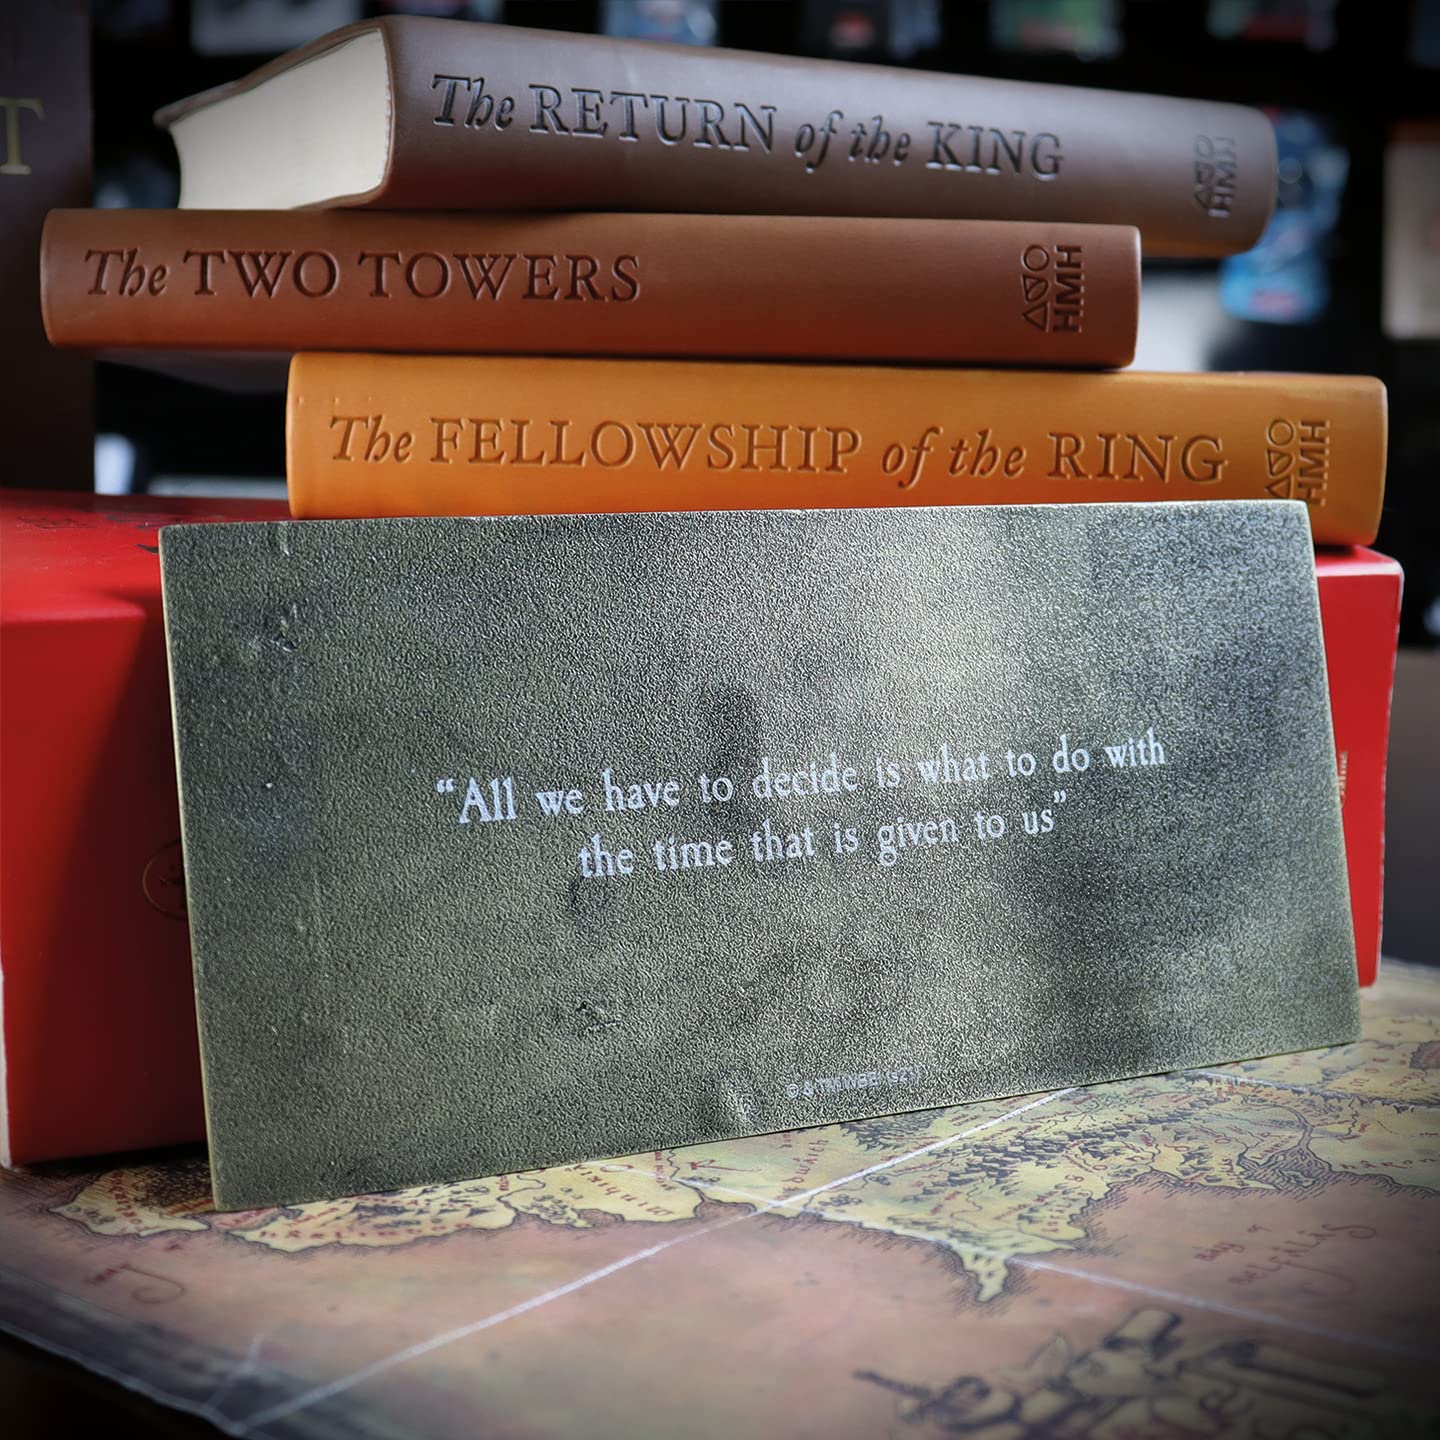 T
The RETURN of the KING
HMH
The TWO TOWERS
HMH
The FELLOWSHIP of the RING
HMH
“All we have to decide is what to do with
the time that is given to us”